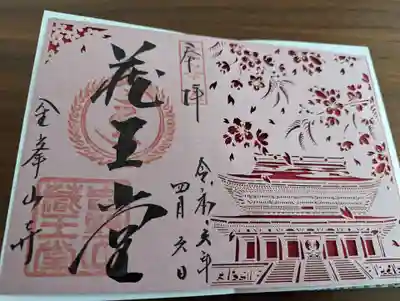 奉拝
令和五年
四月六日
蔵王堂
金峯山寺
藏王堂